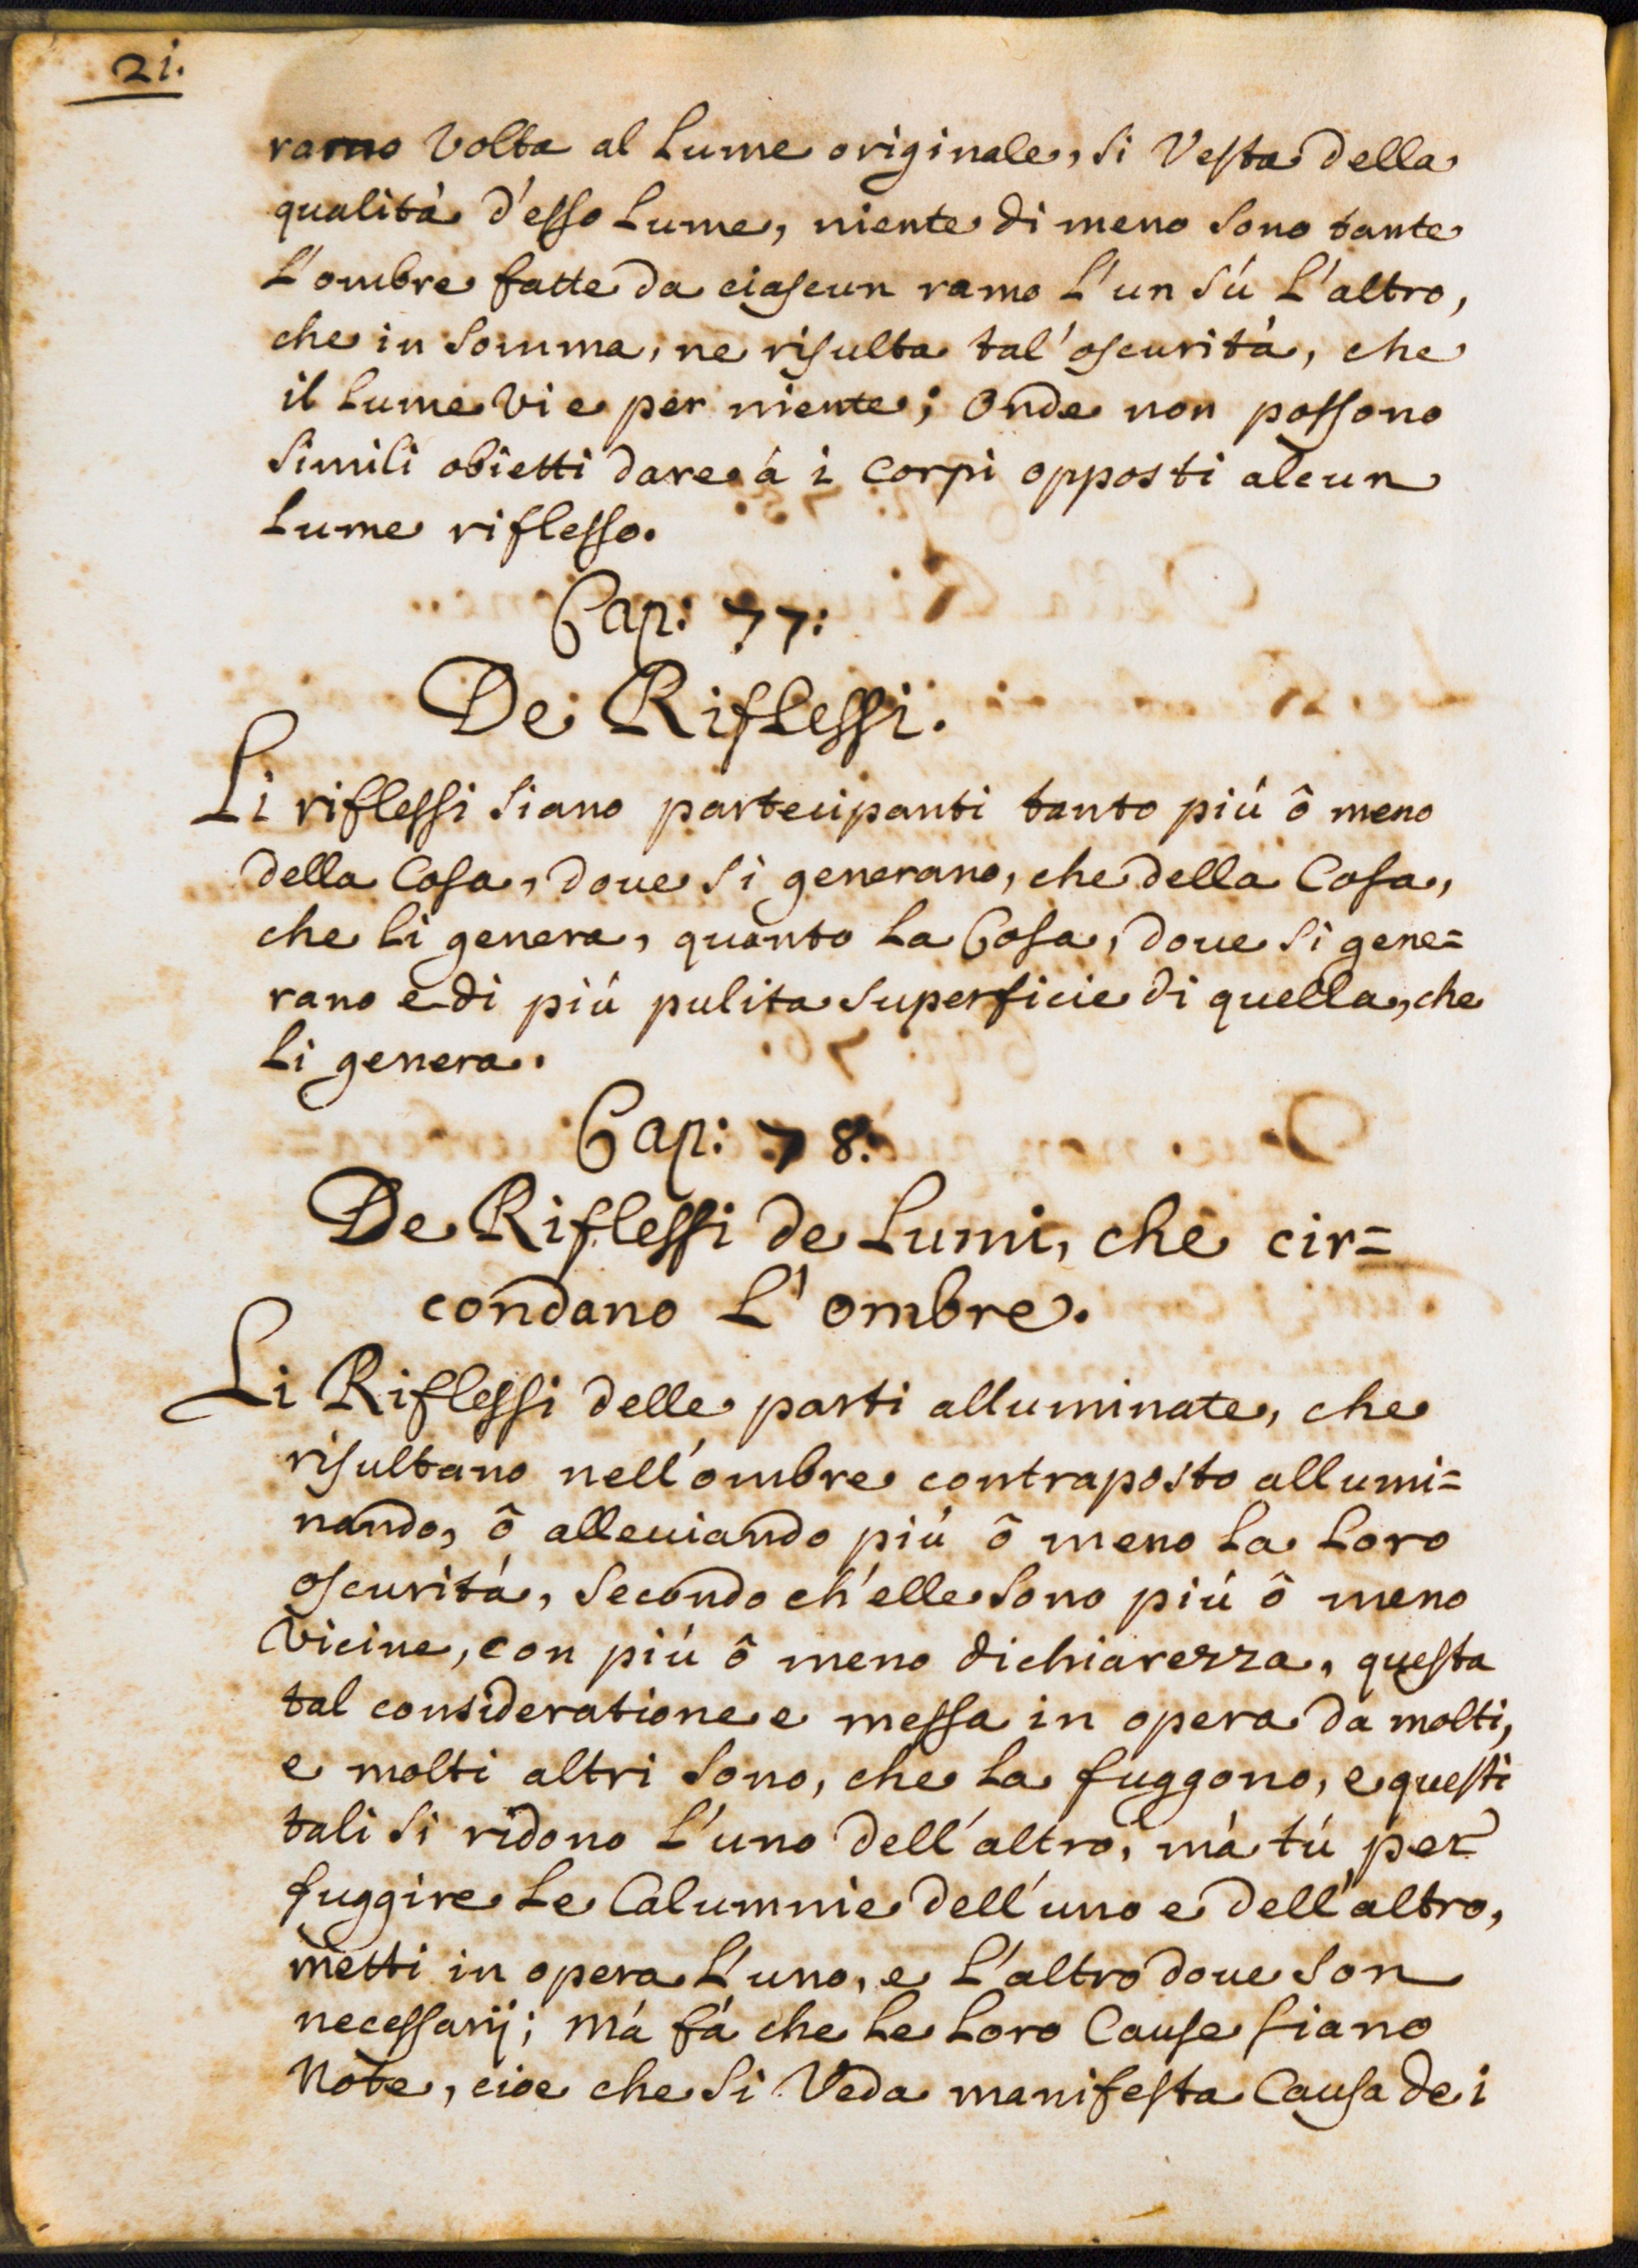 21.
ramo volta al Lume originale, si Vesta della
qualità d'esso Lume, niente di meno sono tante
L'ombre fatte da ciascun ramo L'un sù L'altro,
che in somma, ne risulta tal'oscurità, che
il Lume vi e per niente; Onde non possono
simili obietti dare à i corpi opposti alcun
Lume riflesso.
Cap: 77:
De Riflessi.
Li riflessi siano partecipanti tanto più ô meno
della Cosa, doue si generano, che della Cosa,
che li genera, quanto La Cosa, doue si gene=
rano e di più pulita superficie di quella, che
Li genera.
Cap: 78:
De Riflessi de Lumi, che cir=
condano L'ombre.
Li Riflessi delle parti alluminate, che
risultano nell'ombre contraposto allumi=
nando, ô alleuiando più ô meno La Loro
oscurità, secondo ch'elle sono più ô meno
Vicine, con più ô meno di chiarezza, questa
tal consideratione e messa in opera da molti,
e molti altri sono, che La fuggono, e questi
tali si ridono L'uno dell'altro, mà tù per
fuggire Le Calumnie dell'uno e dell'altro,
metti in opera L'uno, e L'altro doue son
necessarij; mà fà che Le Loro Cause siano
Note, cioe che si Veda manifesta Causa de i